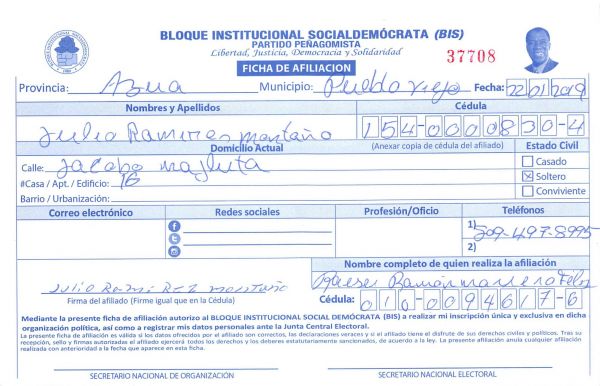 BLOQUE INSTITUCIONAL SOCIALDEMÓCRATA (BIS)
PARTIDO PEÑAGOMISTA
Libertad, Justicia, Democracia y Solidaridad
37708
FICHA DE AFILIACION
Provincia: Azua Municipio: Pueblo viejo Fecha: 22/01/2019
Nombres y Apellidos Cédula
Julio Ramires montaño 154-0000830-4
Domicilio Actual (Anexar copia de cédula del afiliado) Estado Civil
Calle: Jacobo majluta Casado
#Casa / Apt. / Edificio: 16 Soltero
Barrio / Urbanización: Conviviente
Correo electrónico Redes sociales Profesión/Oficio Teléfonos
1) 809-497-8995
2)
Nombre completo de quien realiza la afiliación
Julio Rami Rez montaño Ramón
Firma del afiliado (Firme igual que en la Cédula) Cédula: 010-0094617-6
Mediante la presente ficha de afiliación autorizo al BLOQUE INSTITUCIONAL SOCIAL DEMÓCRATA (BIS) a realizar mi inscripción única y exclusiva en dicha
organización política, así como a registrar mis datos personales ante la Junta Central Electoral.
La presente ficha de afiliación es válida si los datos ofrecidos por el afiliado son correctos, las declaraciones veraces y si el afiliado tiene el disfrute de sus derechos civiles y políticos. Tras su
recepción, sello y firmas autorizadas el afiliado ejercerá todos los derechos y los deberes estatutariamente sancionados, de acuerdo a la ley. La presente afiliación anula cualquier afiliación
realizada con anterioridad a la fecha que aparece en esta ficha.
SECRETARIO NACIONAL DE ORGANIZACIÓN SECRETARIO NACIONAL ELECTORAL